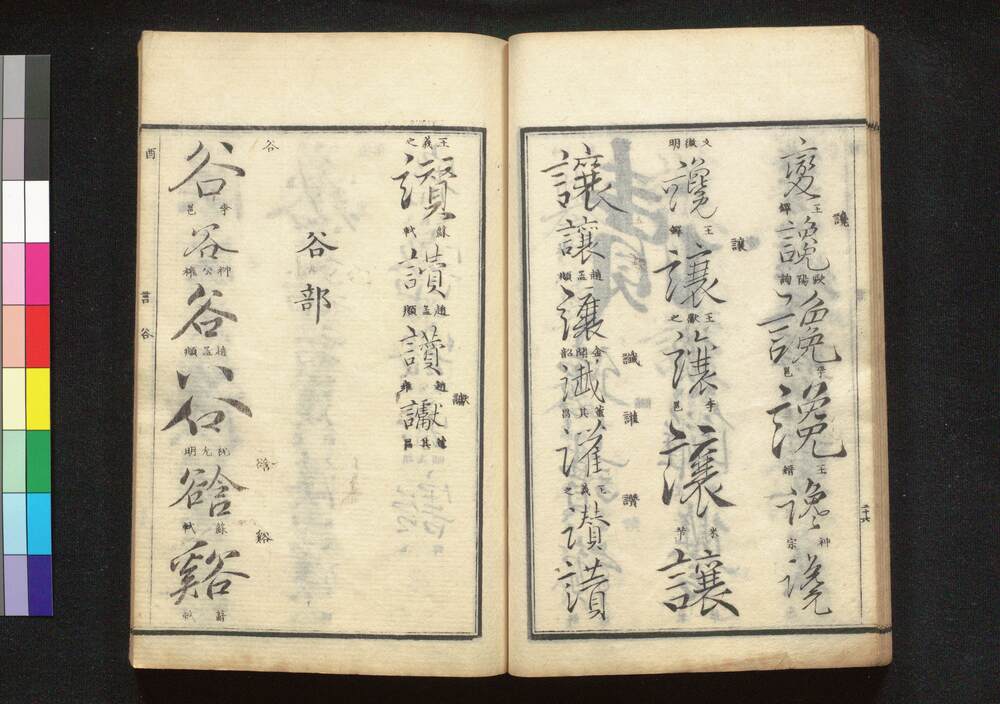 變
王鐸
讒
讒
歐陽詢
讒
李邕
讒
王縉
讒
神宗
讒
二十六
文徵明
讒
王鐸
讓
讓
王獻之
讓
李邕
讓
米芾
讓
讓
讓
趙孟頫
讓
金闕韶
讖
讖
董其昌
讙
讙
王羲之
讚
讚
讚
王羲之
讚
蘇軾
讚
趙孟頫
讚
趙雍
讞
讞
董其昌
谷部
谷
谷
李邕
谷
柳公權
谷
趙孟頫
谷
祝允明
谽
谽
蘇軾
谿
谿
蘇軾
酉
言谷